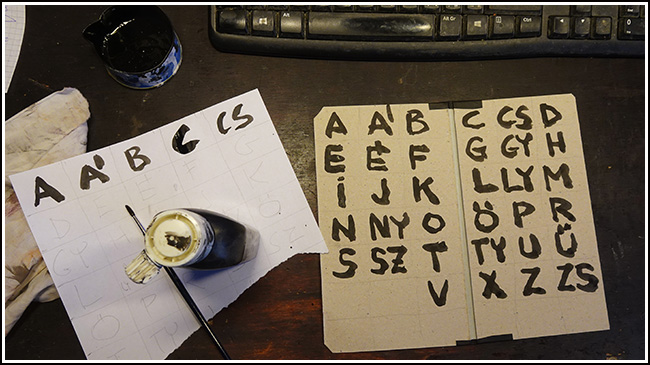 Alt Alt Gr Ctrl
A Á B C CS
A Á B C CS D
E É F G GY H
İ J K L LY M
N NY O Ö P R
S SZ T TY U Ü
V X Z ZS